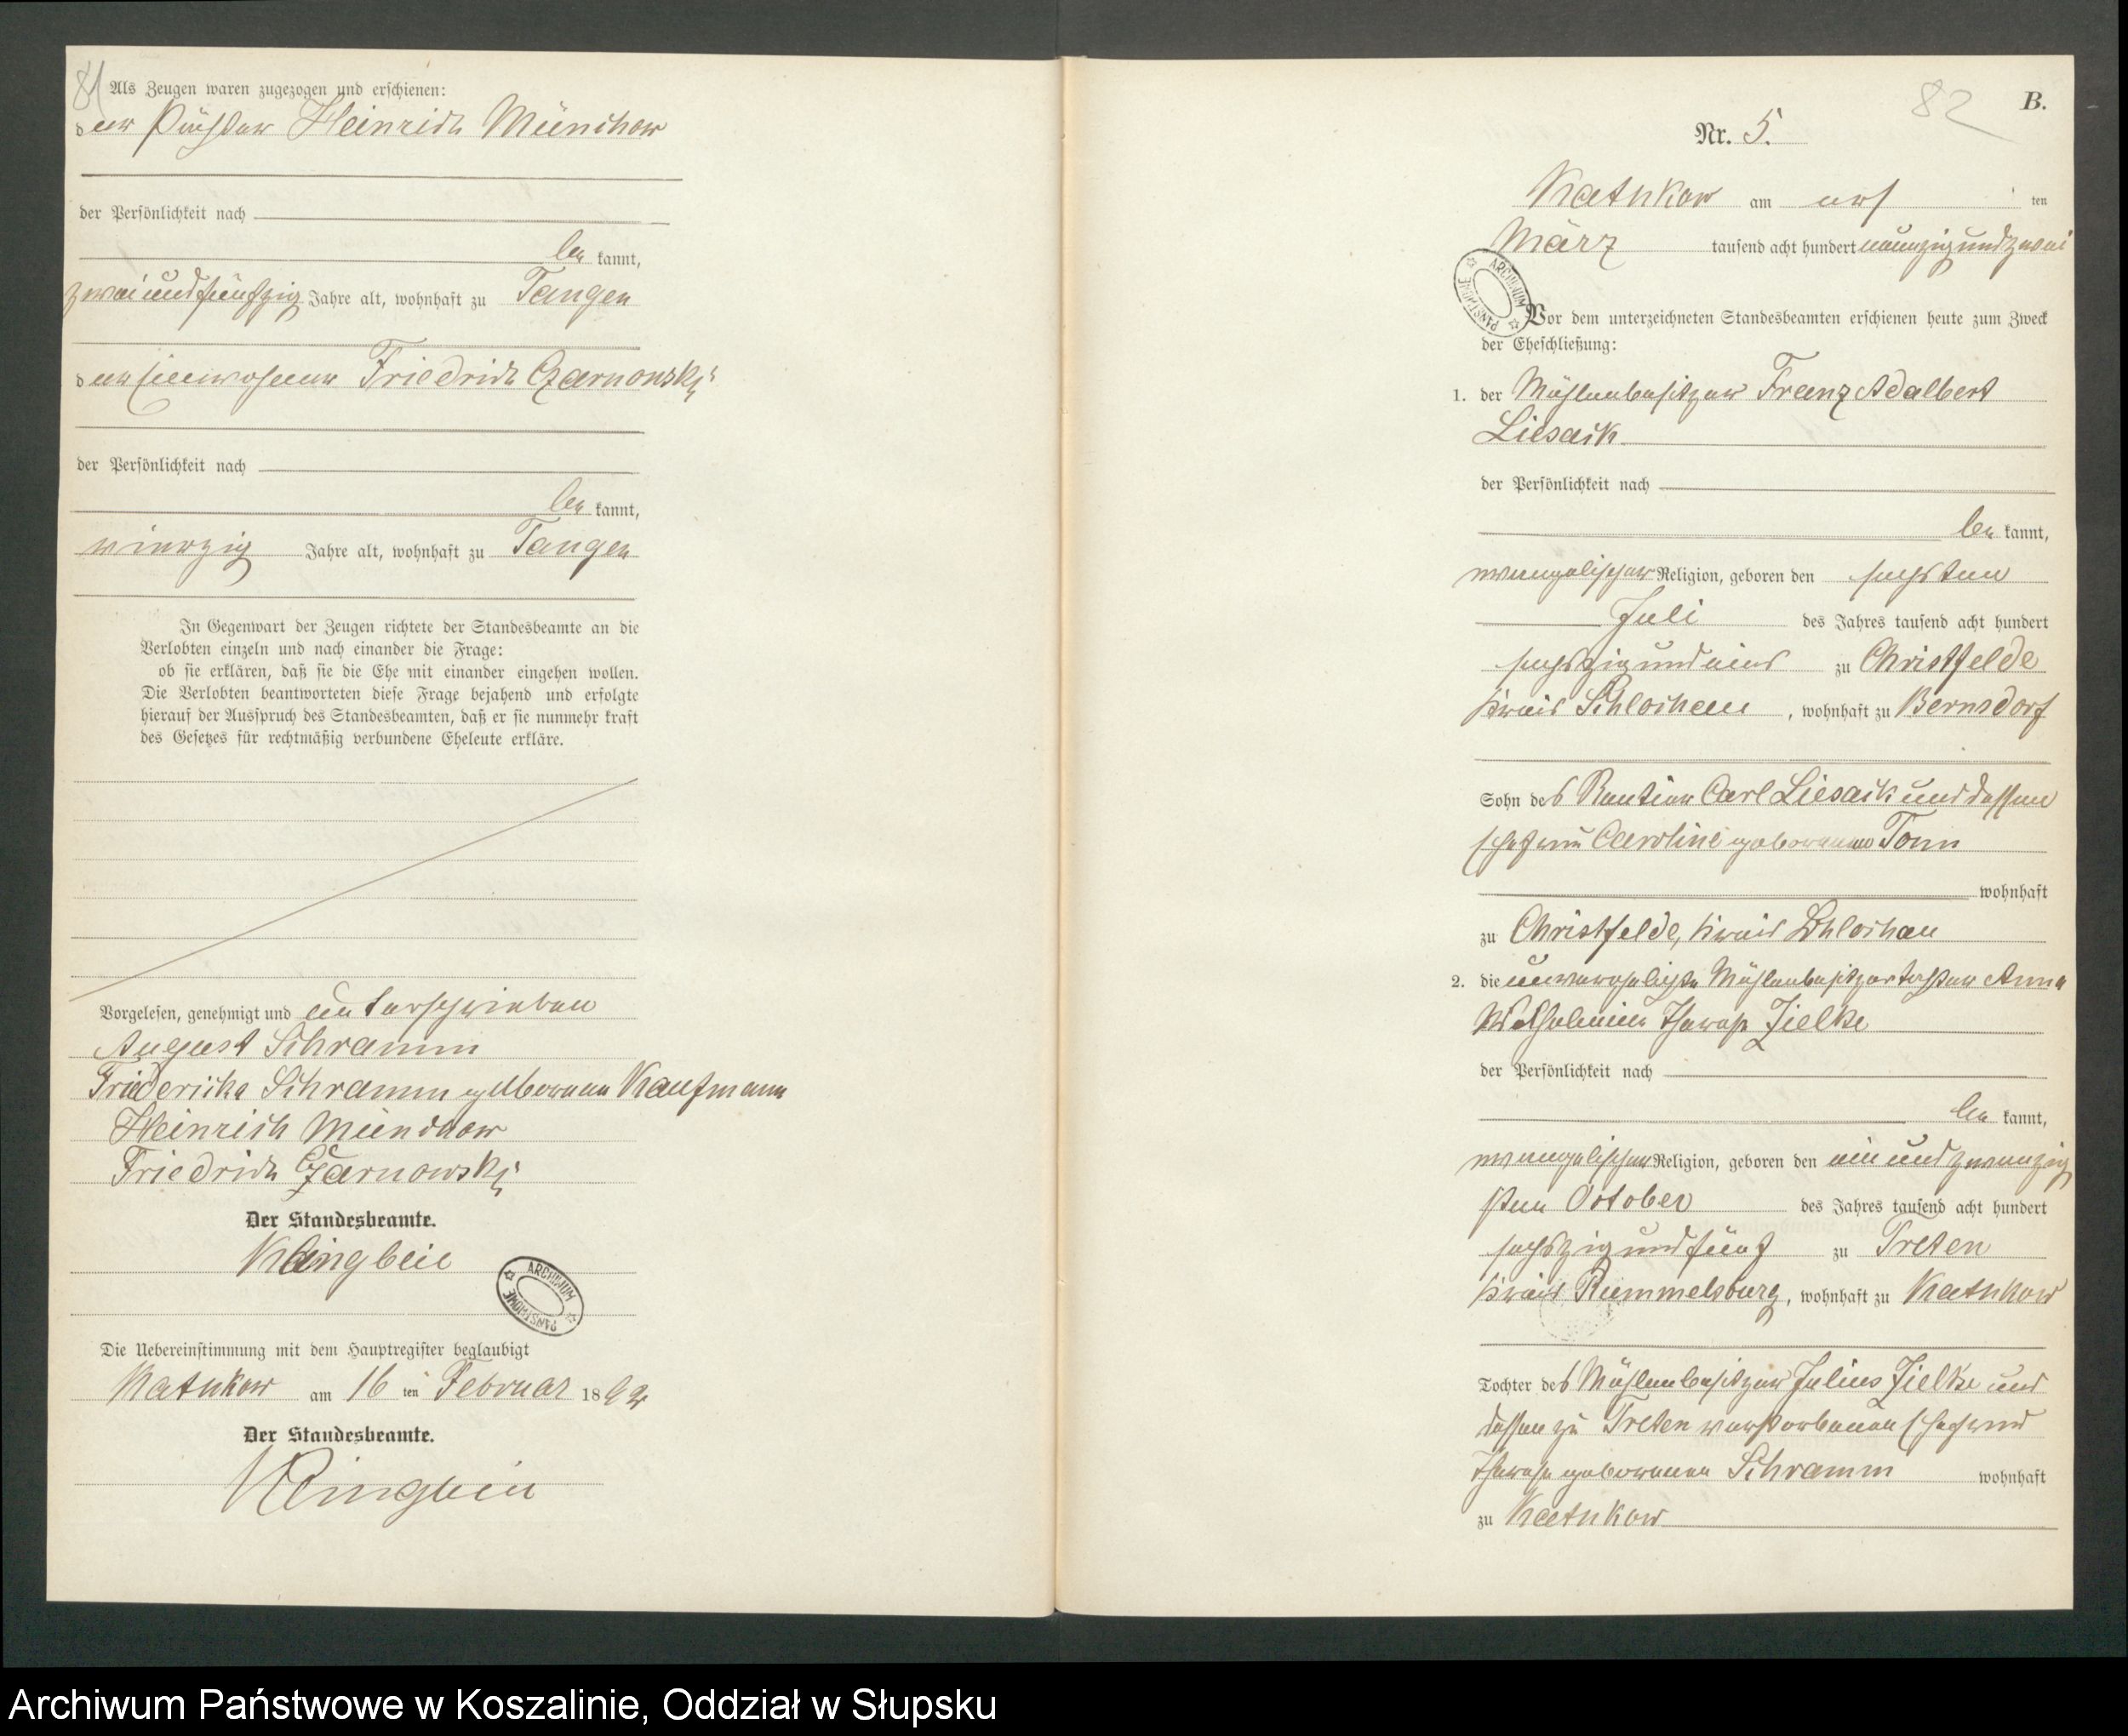 81
Als Zeugen waren zugezogen und erschienen:
der Heinrich Münchow
der Persönlichkeit nach
be kannt,
zweiundfünfzig Jahre alt, wohnhaft zu Tangen
der Einwohner Friedrich Czarnowski
der Persönlichkeit nach
be kannt,
vierzig Jahre alt, wohnhaft zu Tangen
In Gegenwart der Zeugen richtete der Standesbeamte an die
Verlobten einzeln und nach einander die Frage:
ob sie erklären, daß sie die Ehe mit einander eingehen wollen.
Die Verlobten beantworteten diese Frage bejahend und erfolgte
hierauf der Ausspruch des Standesbeamten, daß er sie nunmehr kraft
des Gesetzes für rechtmäßig verbundene Eheleute erkläre.
Vorgelesen, genehmigt und unterschrieben
August Schramm
Friedericke Schramm geborene Kaufmann
Heinrich Münchow
Friedrich Czarnowski
Der Standesbeamte.
Klingbeil
ARCHIWUM PAŃSTWOWE
Die Uebereinstimmung mit dem Hauptregister beglaubigt
Kathkow am 16 ten Februar 1892
Der Standesbeamte.
Klingbeil
82
B.
Nr. 5.
Kathkow am ten
März tausend acht hundert neunzigundzwei
ARCHIWUM PAŃSTWOWE
Vor dem unterzeichneten Standesbeamten erschienen heute zum Zweck
der Eheschließung:
1. der Mühlenbesitzer Franz Adalbert
Liesack
der Persönlichkeit nach
be kannt,
evangelischer Religion, geboren den sechsten
Juli des Jahres tausend acht hundert
sechszigundeins zu Christfelde
Kreis Schlochau, wohnhaft zu Bernsdorf
Sohn des Rentier Carl Liesack und dessen
Ehefrau Caroline geborenen Tonn
wohnhaft
zu Christfelde, Kreis Schlochau
2. die unverehelichte Mühlenbesitzertochter Anna
Wilhelmine Therese Zielke
der Persönlichkeit nach
be kannt,
evangelischer Religion, geboren den ein und zwanzig
sten October des Jahres tausend acht hundert
sechszigundfünf zu Treten
Kreis Rummelsburg, wohnhaft zu Kathkow
Tochter des Mühlenbesitzer Julius Zielke und
dessen zu Treten verstorbenen Ehefrau
Therese geborenen Schramm wohnhaft
zu Kathkow
Archiwum Państwowe w Koszalinie, Oddział w Słupsku